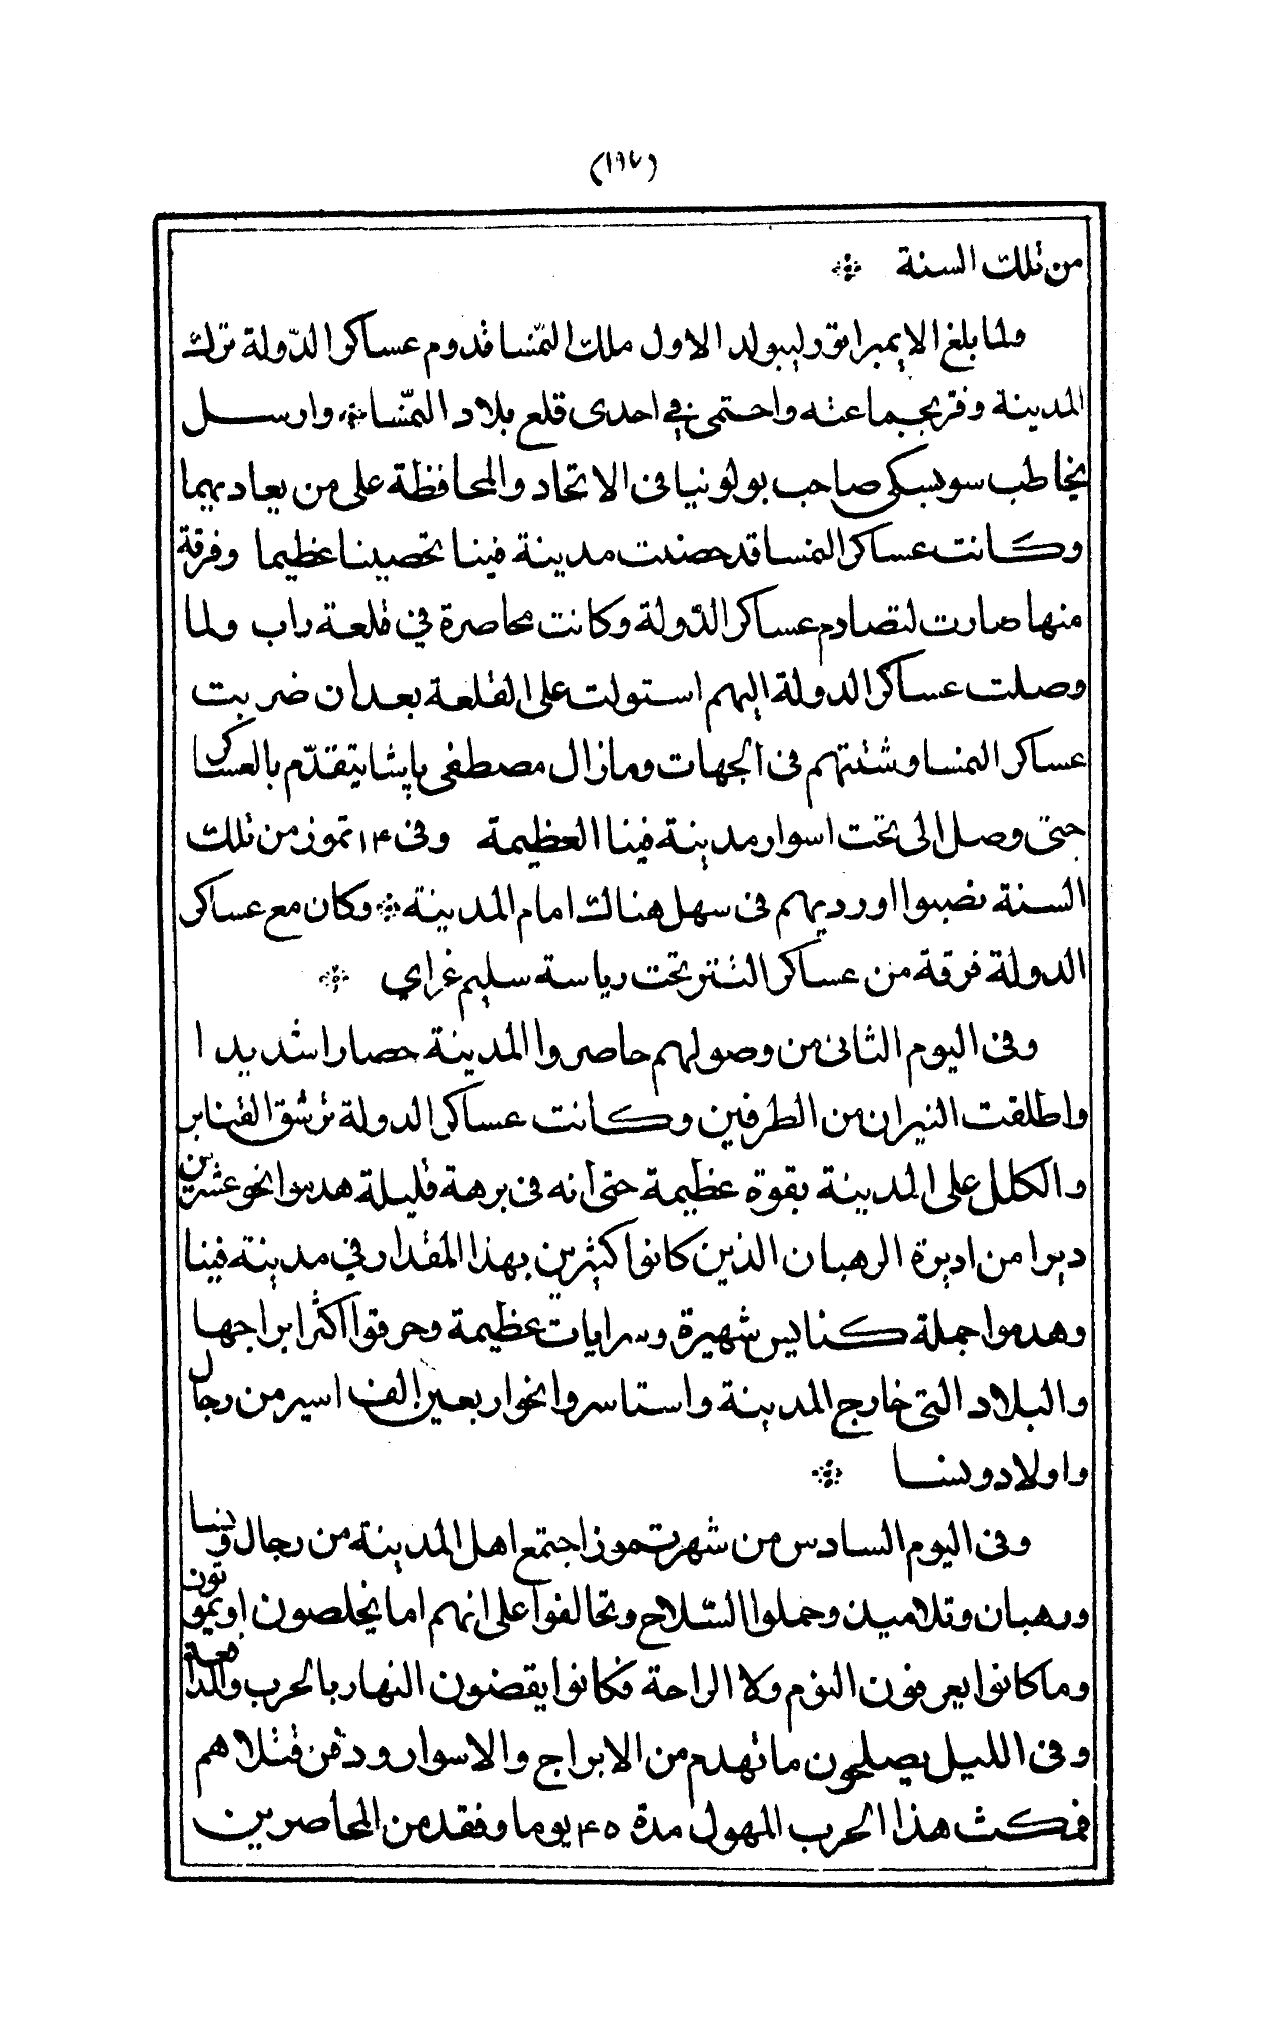 (١٦٧)
من تلك السنة ❊
ولما بلغ الايمبراتور ليبولد الاول ملك النمّسا قدوم عساكر الدّولة ترك
المدينة وفرّ بجماعته واحتمى في احدى قلع بلاد النمّسا ❊ وارسل
يخاطب سوبسكى صاحب بولونيا فى الاتحاد والمحافظة على من يعاديهما
وكانت عساكر النمسا قد حصنت مدينة فينا تحصينا عظيما وفرقة
منها صارت لتصادم عساكر الدّولة وكانت محاصرة في قلعة راب ولما
وصلت عساكر الدولة اليهم استولت على القلعة بعد ان ضربت
عساكر النمسا وشتتهم فى الجهات وما زال مصطفى پاشا يتقدّم بالعساكر
حتى وصل الى تحت اسوار مدينة فينا العظيمة وفى ١٤ تموز من تلك
السنة نصبوا اورديهم فى سهل هناك امام المدينة ❊ وكان مع عساكر
الدولة فرقة من عساكر التتر تحت رياسة سليم غراي ❊
وفى اليوم الثانى من وصولهم حاصروا المدينة حصارا شديدا
واطلقت النيران من الطرفين وكانت عساكر الدولة ترشق القنابر
والكلل على المدينة بقوة عظيمة حتى أنه فى برهة قليلة هدموا نحو عشرين
ديرا من اديرة الرهبان الذين كانوا كثيرين بهذا المقدار في مدينة فينا
وهدموا جملة كنايس شهيرة وسرايات عظيمة وحرقوا اكثر ابراجها
والبلاد التى خارج المدينة واستاسروا نحوا ربعين الف اسير من رجال
واولاد ونسا ❊
وفى اليوم السادس من شهر تموز اجتمع اهل المدينة من رجال ونسا
ورهبان وتلاميذ وحملوا السّلاح وتحالفوا على انهم اما يخلصون او يموتون
وما كانوا يعرفون النوم ولا الراحة فكانوا يقضون النهار بالحرب والمدافعة
وفى الليل يصلحون ما تهدم من الابراج والاسوار ودفن قتلاهم
فمكث هذا الحرب المهول مدة ٤٥ يوما وفقد من المحاصرين